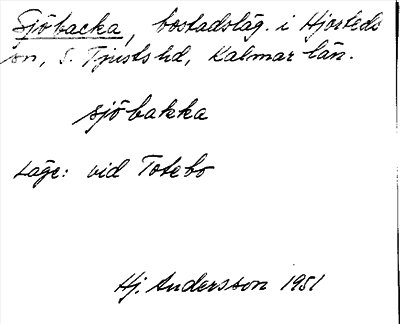 Sjöbacka, bostadsläg. i Hjorteds
sn, S. Tjusts hd, Kalmar län.
sjöbakka
Läge: vid Totebo
Hj. Andersson 1951